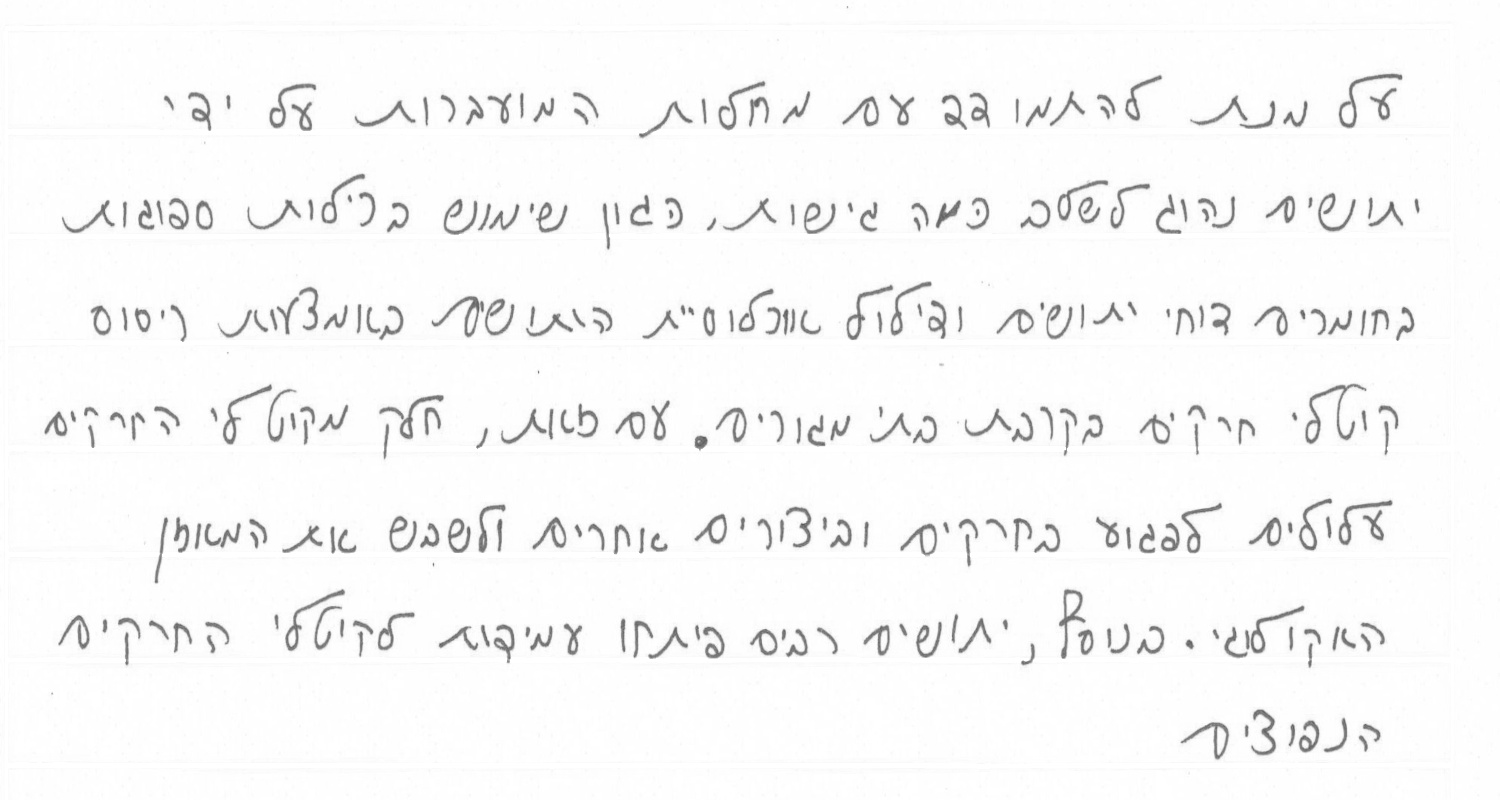 על מנת להתמודד עם מחלות המועברות על ידי
יתושים נהוג לשלב כמה גישות, כגון שימוש בכילות ספוגות
בחומרים דוחי יתושים ודילול אוכלוסיית היתושים באמצעות ריסוס
קוטלי חרקים בקרבת בתי מגורים. עם זאת, חלק מקוטלי החרקים
עלולים לפגוע בחרקים וביצורים אחרים ולשבש את המאוזן
האקולוגי. בנוסף, יתושים רבים פיתחו עמידות לקוטלי החרקים
הנפוצים